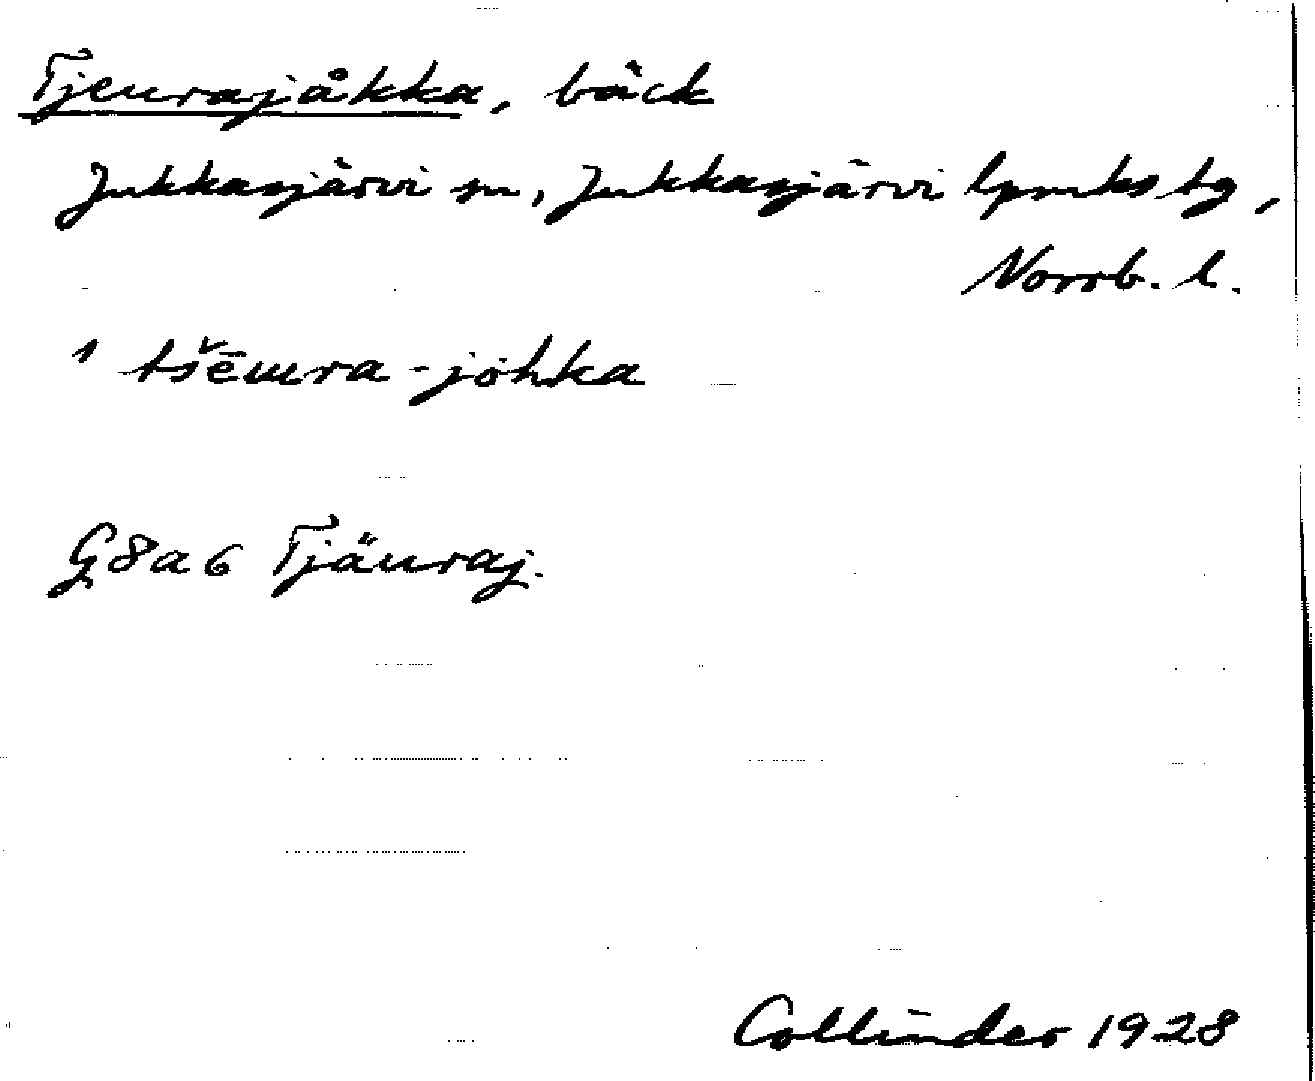 Tjeurajåkka, bäck
Jukkasjärvi sn, Jukkasjärvi lpmks tg,
Norrb. l.
1 tšēura-johka
G8a6 Tjäuraj.
Collinder 1928